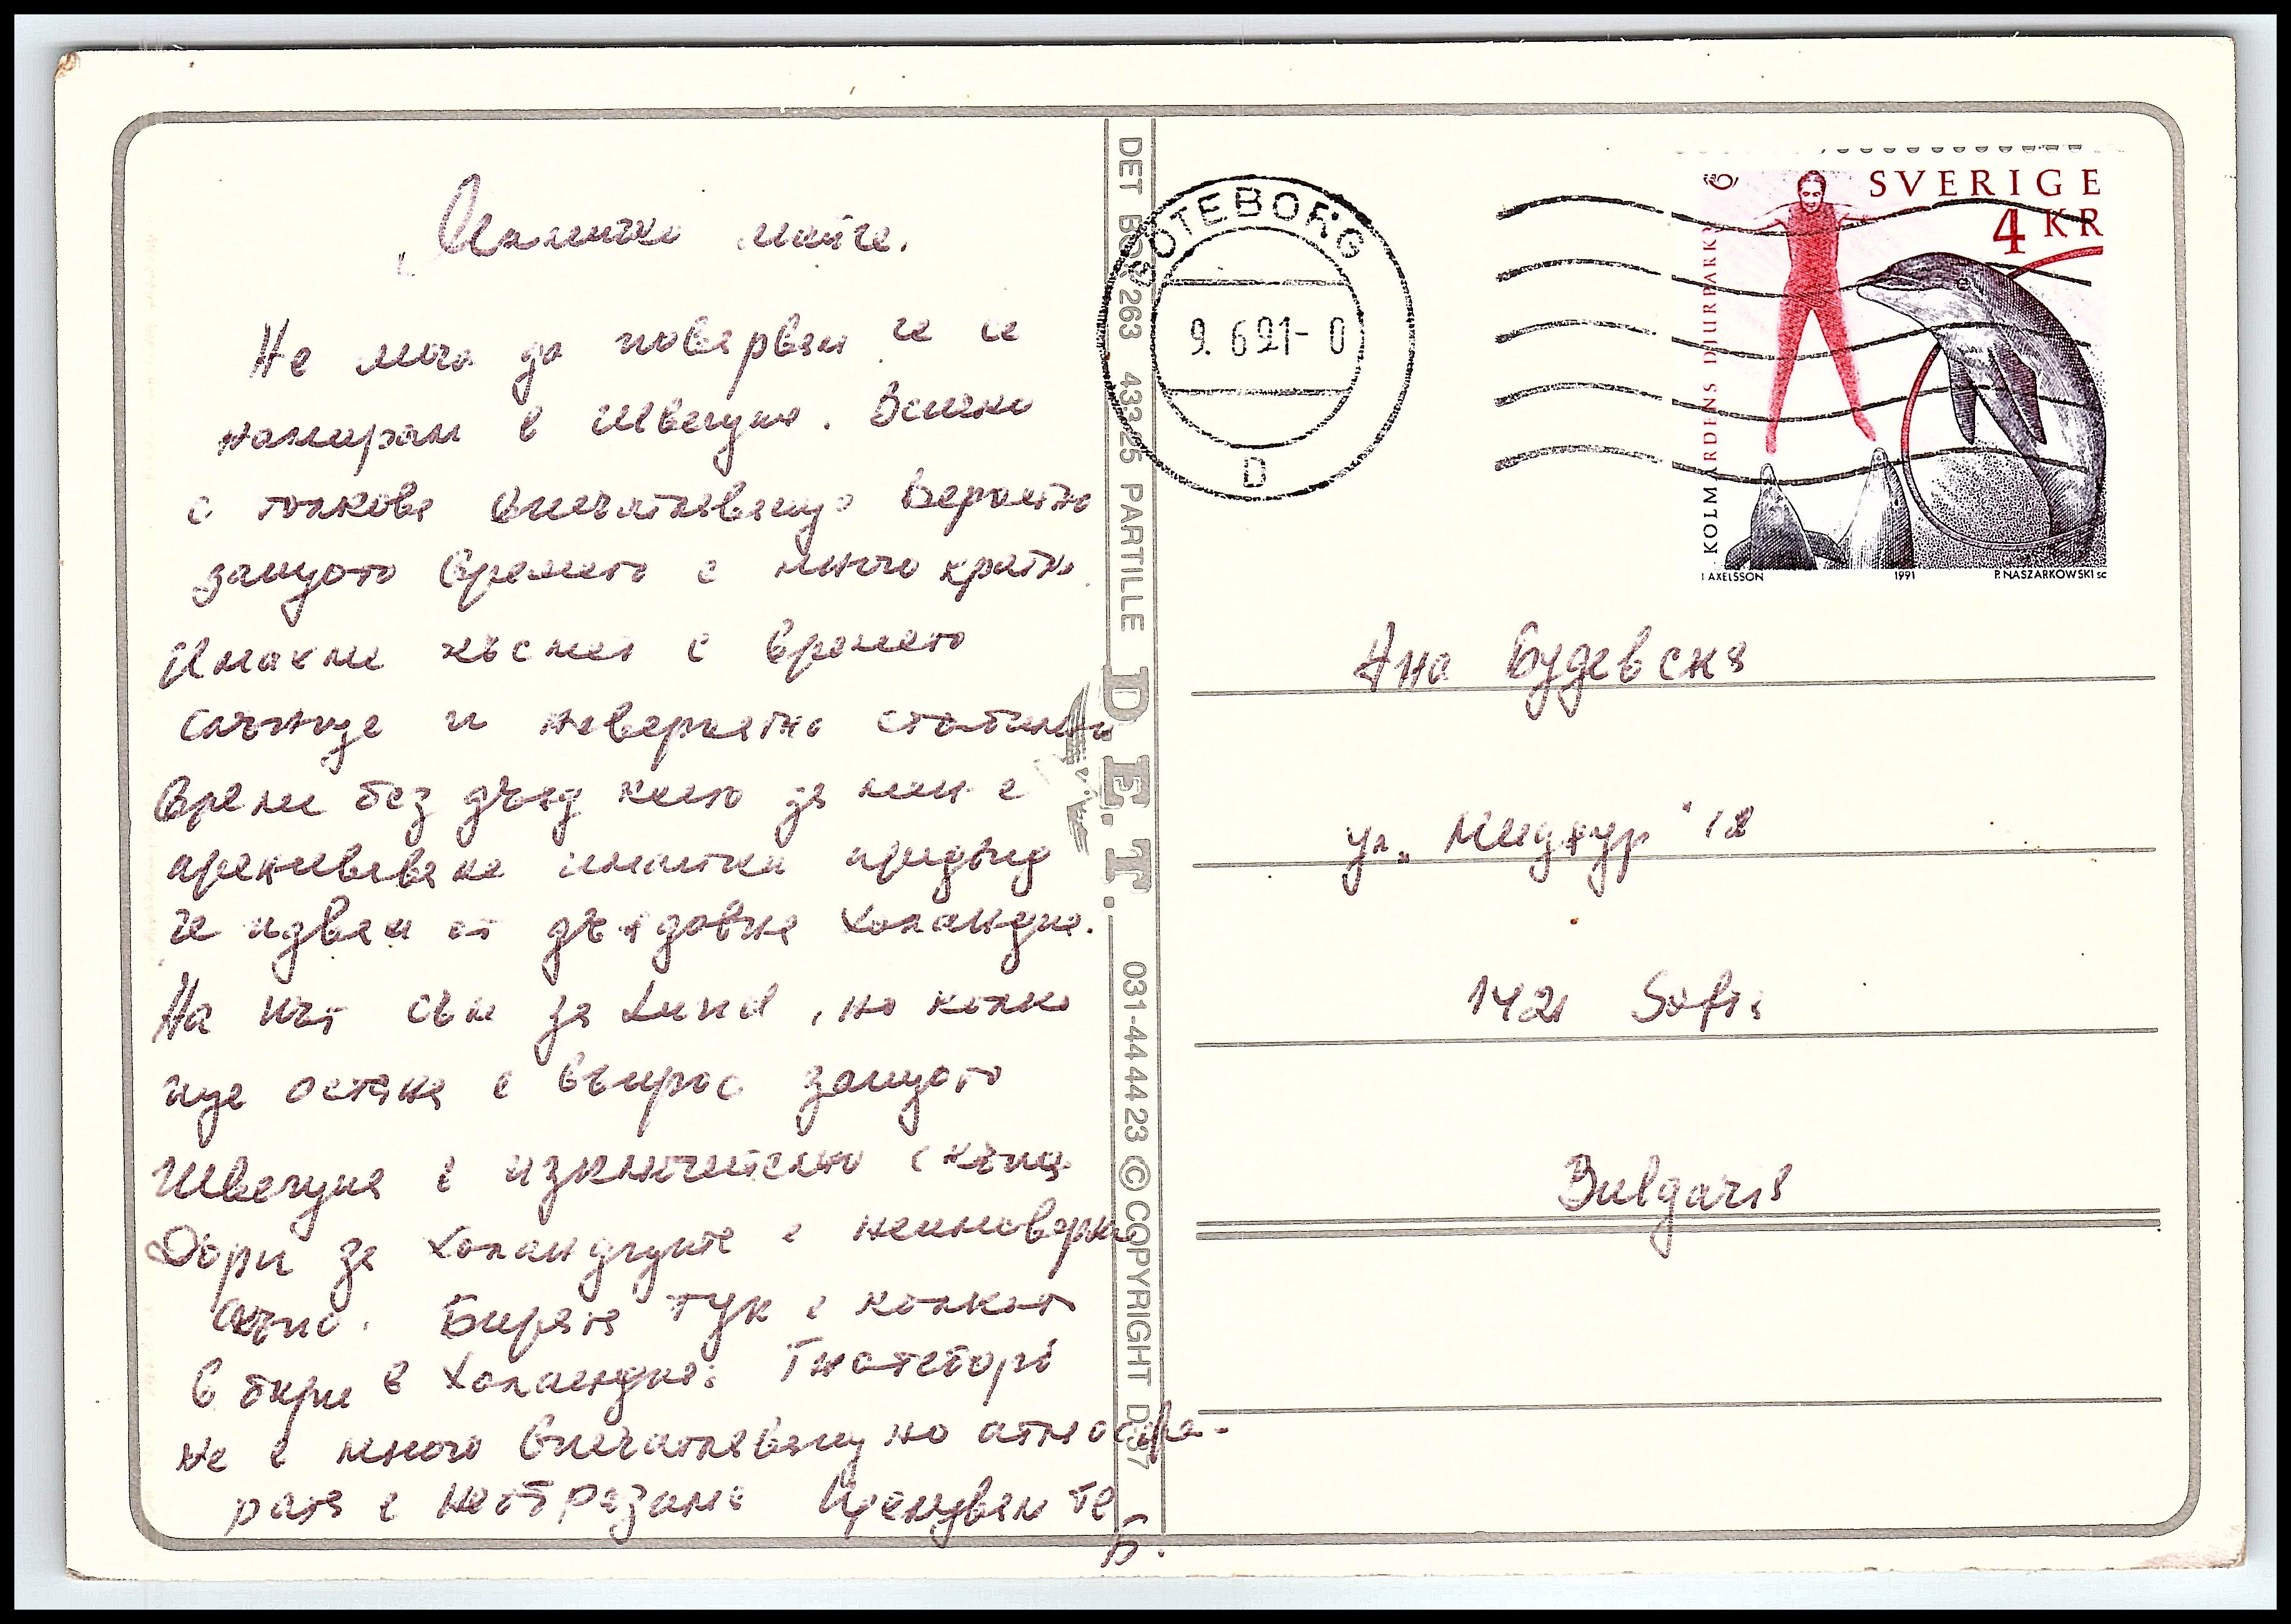 Маличко мойче.
Не мога да повярвам че се
намирам в Швеция. Всичко
е толкова впечатляващо Вероятно
защото времето е много кратко.
Имахме късмет с времето
слънце и невероятно стабилно
време без дъжд което за мен е
преживяване имайки предвид
че идвам от дъждовна Холандия.
На път съм за Lund, но колко
ще остана е въпрос защото
Швеция е изключително скъпа
Дори за холандците е неимоверно
скъпо. Бирата тук е колкото
6 бири в Холандия. Гьотеборг
не е много впечатляващ но атмосфе-
рата е необуздана Целувам те
Б.
DET BOX 263 433 25 PARTILLE
D.E.T.
031-44 44 23 © COPYRIGHT D 37
GÖTEBORG
9. 6 91- 0
D
SVERIGE
4 KR
KOLMÅRDENS DJURPARK
I AXELSSON 1991 P. NASZARKOWSKI sc
Ана Будевска
ул. "Миджур" 18
1421 Sofia
Bulgaria